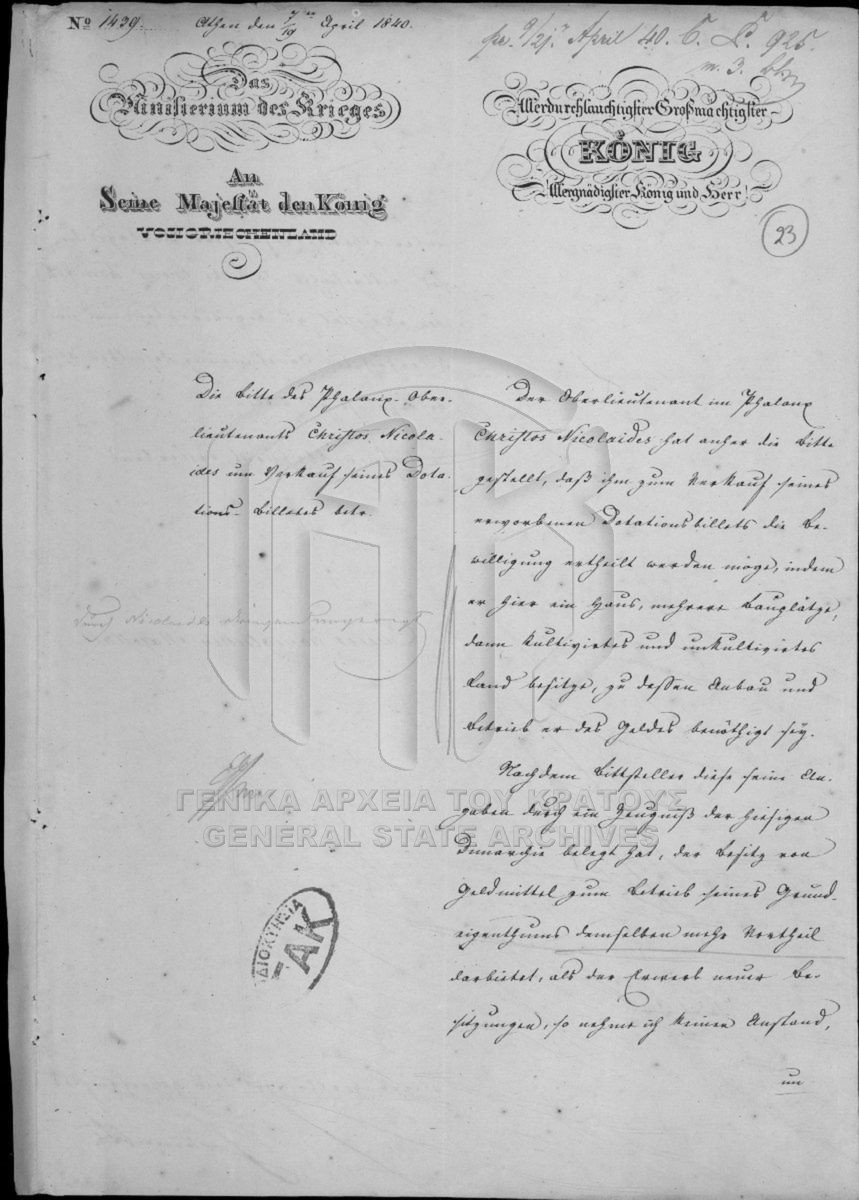 No 1439. Athen den 7/19 ten April 1840.
pr. 9/21. April 40. C. L. 925.
m. 3.
Das
Ministerium des Krieges
An
Seine Majestät den König
VON GRIECHENLAND
Allerdurchlauchtigster Großmächtigster
KÖNIG
Allergnädigster König und Herr!
23
Die Bitte des Phalanx-Ober-
lieutenants Christos Nicola-
ides um Verkauf seines Dota-
tions-Billetes betr.
Durch Nicolaides
Der Oberlieutenant im Phalanx
Christos Nicolaides hat anher die Bitte
gestellt, daß ihm zum Verkauf seines
erworbenen Dotationsbillets die Be-
willigung ertheilt werden möge, indem
er hier ein Haus, mehrere Bauplätze,
dann kultivirtes und unkultivirtes
Land besitze, zu dessen Anbau und
Betrieb er des Geldes benöthigt sey.
Nachdem Bittsteller diese seine An-
gaben durch ein Zeugniß der hiesigen
Dimarchie belegt hat, der Besitz von
Geldmittel zum Betrieb seines Grund-
eigenthums demselben mehr Vortheil
darbietet, als der Erwerb neuer Be-
sitzungen, so nehme ich keinen Anstand,
um
ΓΕΝΙΚΑ ΑΡΧΕΙΑ ΤΟΥ ΚΡΑΤΟΥΣ
GENERAL STATE ARCHIVES
ΙΔΙΟΚΤΗΣΙΑ
ΓΑΚ